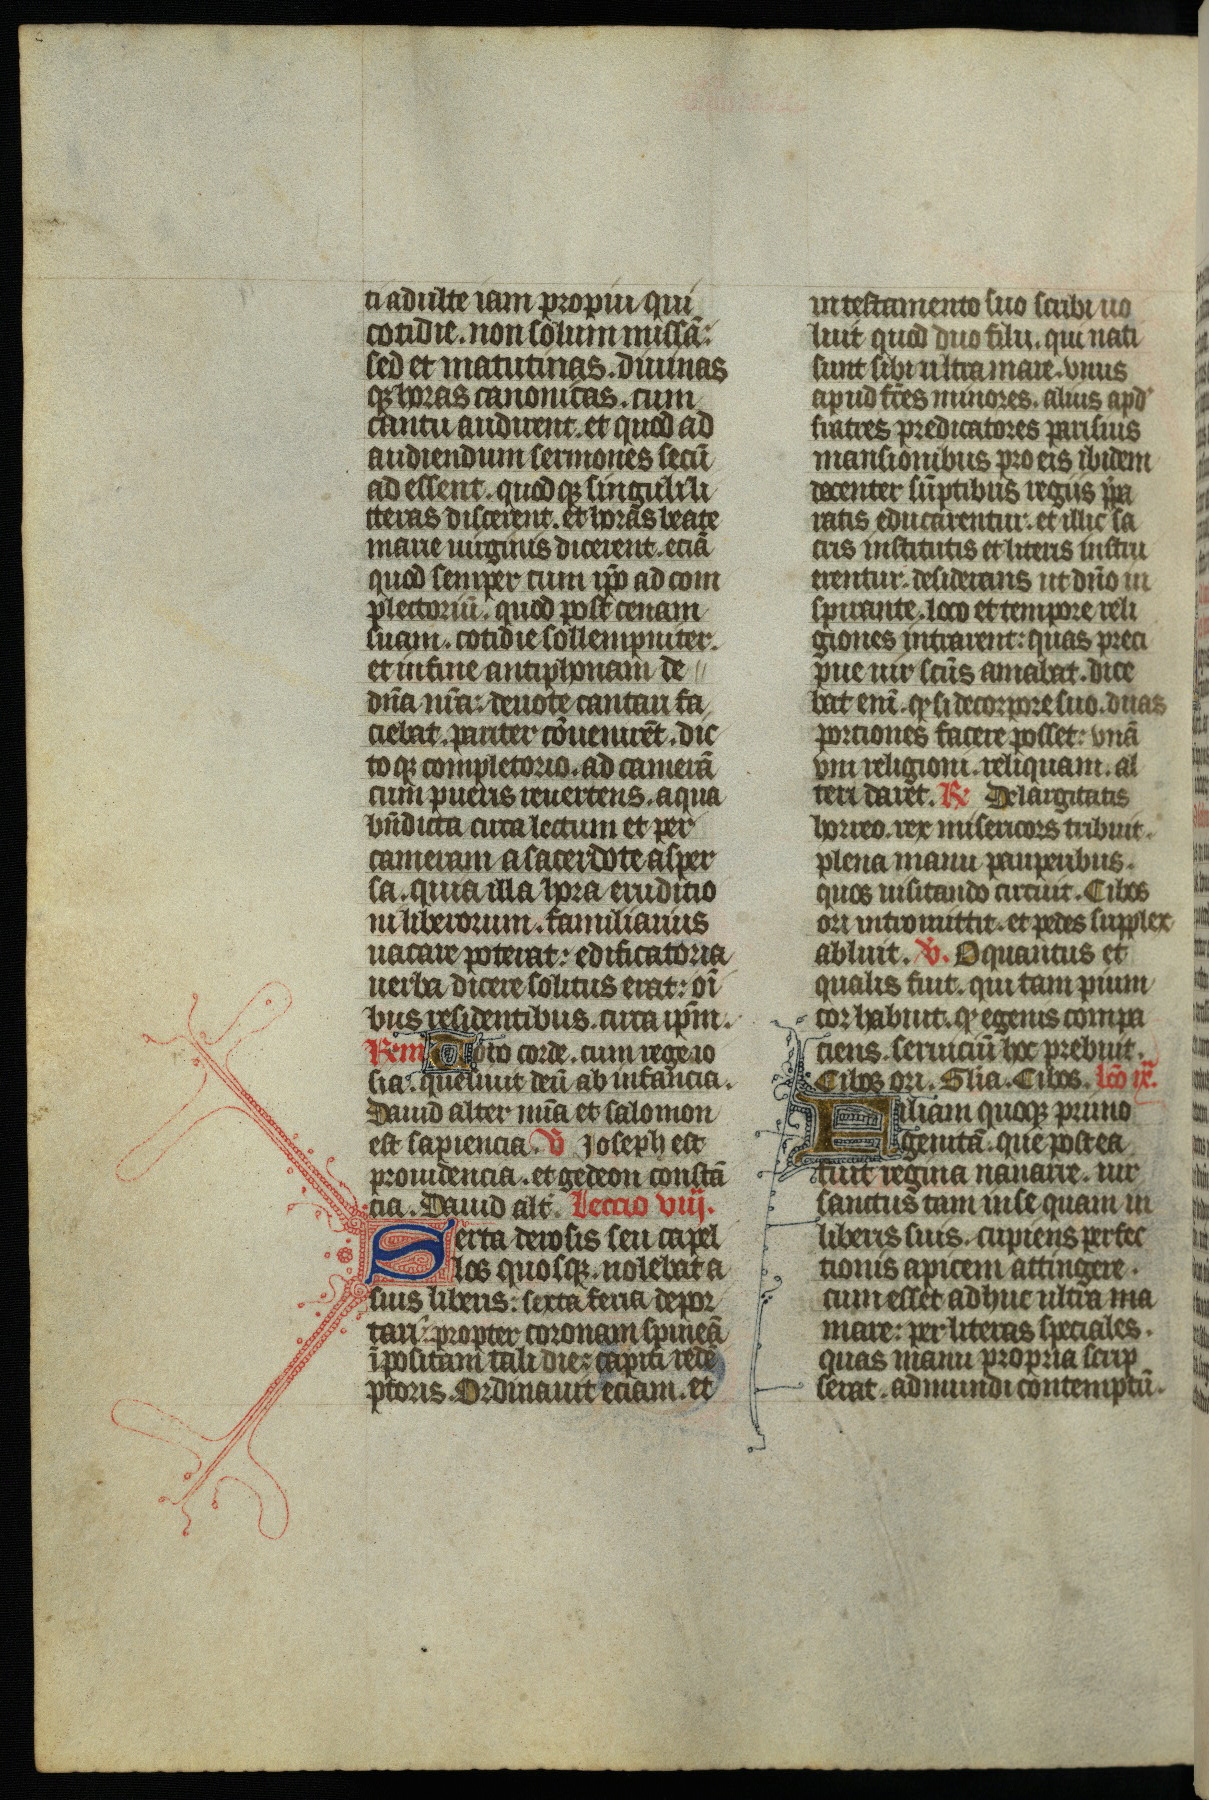 ti adulte iam propiu qui
cotidie. non solum missã:
sed et matutinas. diuinas
qꝫ horas canonicas. cum
cantu audirent. et quod ad
audiendum sermones secũ
ad essent. quod qꝫ singuli li
tteras discerent. et horas beate
marie uirginis dicerent. eciã
quod semper cum ip̃o ad com
plectoriũ. quod post cenam
suam. cotidie sollempniter.
et in fine antiphonam de
dñа nr̃a: deuote cantari fa
ciebat. pariter cõuenirẽt. dic
to qꝫ completorio. ad camerã
cum pueris reuertens. aqua
bñdicta circa lectum et per
cameram a sacerdote asper
sa. quia illa hora eruditio
ni liberorum. familiarius
uacare poterat: edificatoria
uerba dicere solitus erat: oı̃
bus residentibus. circa ip̃m.
Rem Toto corde. cum rege io
sia. quesiuit deũ ab infancia.
Dauid alter nr̃a et salomon
est sapiencia. V Joseph est
prouidencia. et gedeon constã
cia. Dauid alt̃. Leccio viij.
Serta de rosis seu capel
los quosqꝫ. nolebat a
suis liberis: sexta feria depor
tari: propter coronam spineã
ı̃positam tali die: capiti rede
ptoris. Ordinauit eciam. et
in testamento suo scribi uo
luit quod duo filii. qui nati
sunt sibi ultra mare. vnus
apud fr̃es minores. alius apđ
fratres predicatores parisius
mansionibus pro eis ibidem
decenter sũptibus regiis p̃pa
ratis educarentur. et illic sa
cris institutis et literis instru
erentur. desiderans ut dño in
spirante. loco et tempore reli
giones intrarent: quas preci
pue uir scũs amabat. dice
bat enĩ. qꝫ si de corpore suo. duas
porciones facere posset: vnã
vni religioni. reliquam. al
teri daret. R De largitatis
horreo. rex misericors tribuit.
plena manu pauperibus.
quos uisitando circuit. Cibos
ori intromittit. et pedes supplex
abluit. V. O quantus et
qualis fuit. qui tam pium
cor habuit. qꝫ egenis compa
ciens. seruiciũ hoc prebuit.
Cibos ori. Glı̃a. Cibos. lc̃o ix̃.
Filiam quoqꝫ primo
genitã. que postea
fuit regina nauarre. uir
sanctus tam in se quam in
liberis suis. cupiens perfec
tionis apicem attingere.
cum esset adhuc ultra ma
mare: per literas speciales.
quas manu propria scrip
serat. ad mundi contemptũ.